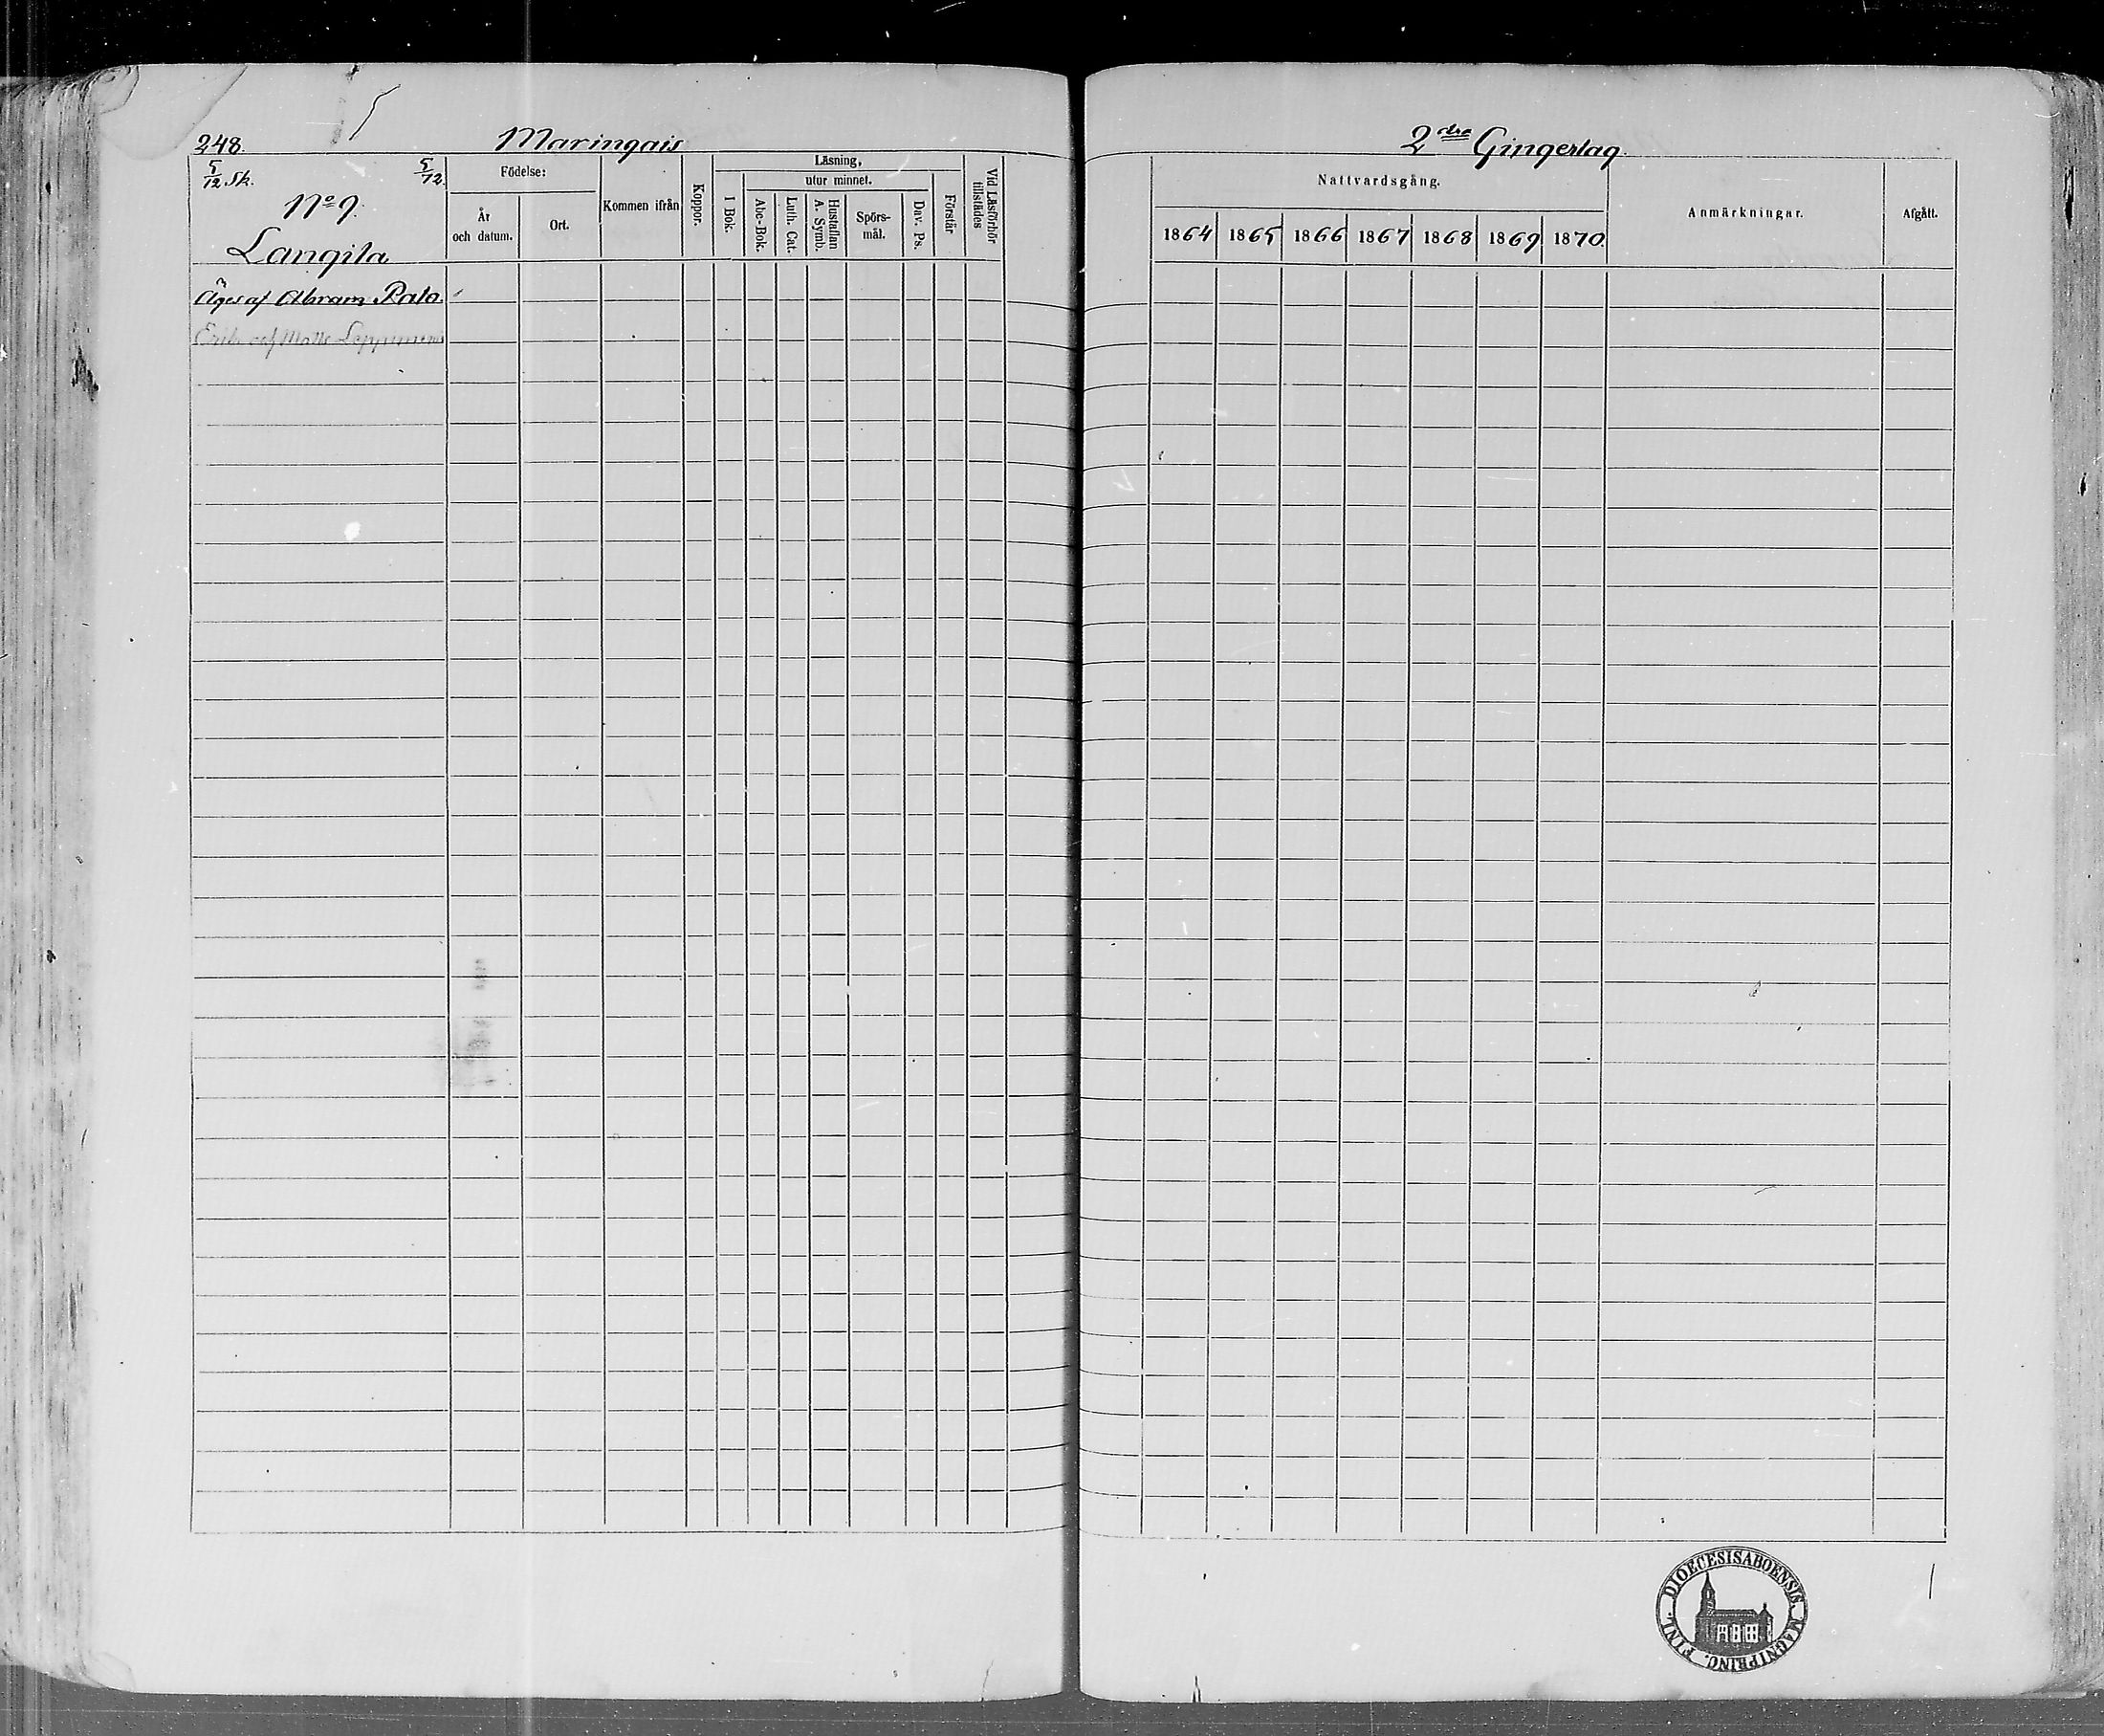 248. Maringais
5/12 Sk. 5/12.
No 9.
Langila
Äges af Abram Rala.
Erik af Matts
Födelse:
År
och datum.
Ort.
Kommen ifrån
Koppor.
Läsning,
utur minnet.
I Bok.
Abc-Bok.
Luth. Cat.
Hustaflan
A. Symb.
Spörs-
mål.
Dav. Ps.
Förstår
Vid Läsförhör
tillstädes
2dra Gingerlag
Nattvardsgång.
1864 1865 1866 1867 1868 1869 1870
Anmärkningar.
Afgått.
DIOECESISABOENSIS. MAGNIPRINC. FINL.